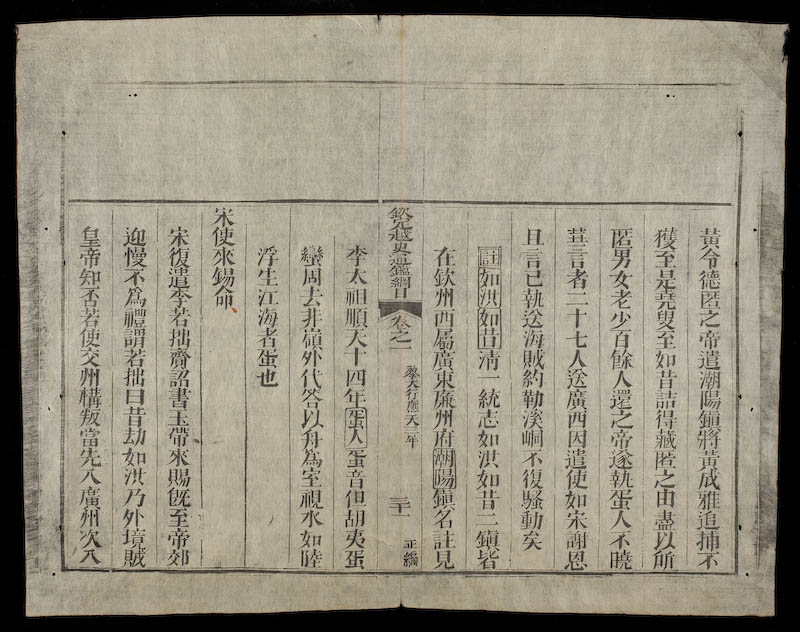 黃令德匿之帝遣潮陽鎮將黃成雅追捕不
獲至是堯叟至如昔詰得藏匿之由盡以所
匿男女老少百餘人還之帝遂執蛋人不曉
華言者二十七人送廣西因遣使如宋謝恩
且言已執送海賊約勒溪峒不復騷動矣
註如洪如昔淸一統志如洪如昔二鎮皆
在欽州西屬廣東廉州府潮陽鎮名註見
欽定越史通鑑綱目 卷之一 黎大行應天三年 三十一 正編
李太祖順天十四年蛋人蛋音但胡夷蛋
蠻周去非嶺外代答以舟爲室視水如陸
浮生江海者蛋也
宋使來錫命
宋復遣李若拙齎詔書玉帶來賜旣至帝郊
迎慢不爲禮謂若拙曰昔刼如洪乃外境賊
皇帝知否若使交州構叛當先入廣州次入